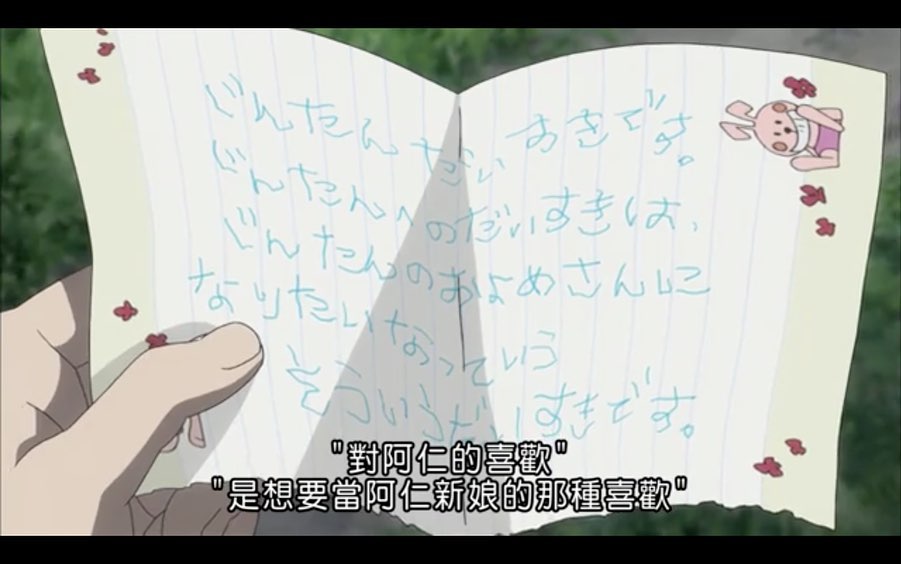 じんたん だいすきです。
じんたんへのだいすきは、
じんたんのおよめさんに
なりたいなっていう
そういうだいすきです。
"對阿仁的喜歡"
"是想要當阿仁新娘的那種喜歡"